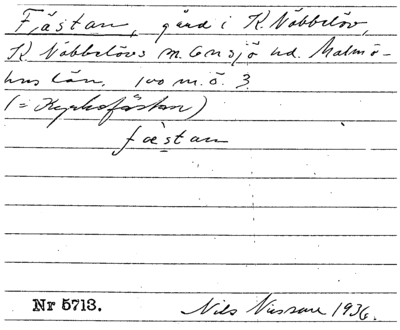 Fjästan, gård i K. Nöbbelöv,
K. Nöbbelövs sn. Onsjö hd. Malmö-
hus län. 100 m. ö. 3.
(= Kyrkofästan)
fæstan
Nr 5713. Nils 1936.